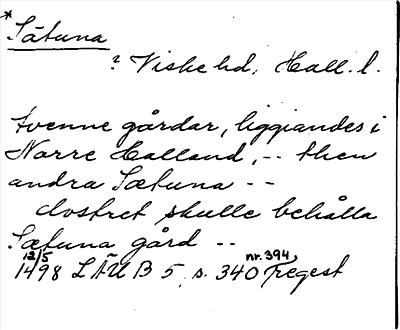 *Sätuna
? Viske hd. Hall. l.
tvenne gårdar, liggiandes i
Norre Halland, -- then
andra Sætuna --
clostret skulle behålla
Sætuna gård --
12/5 nr. 394,
1498 LÄU B 5, s. 340 regest